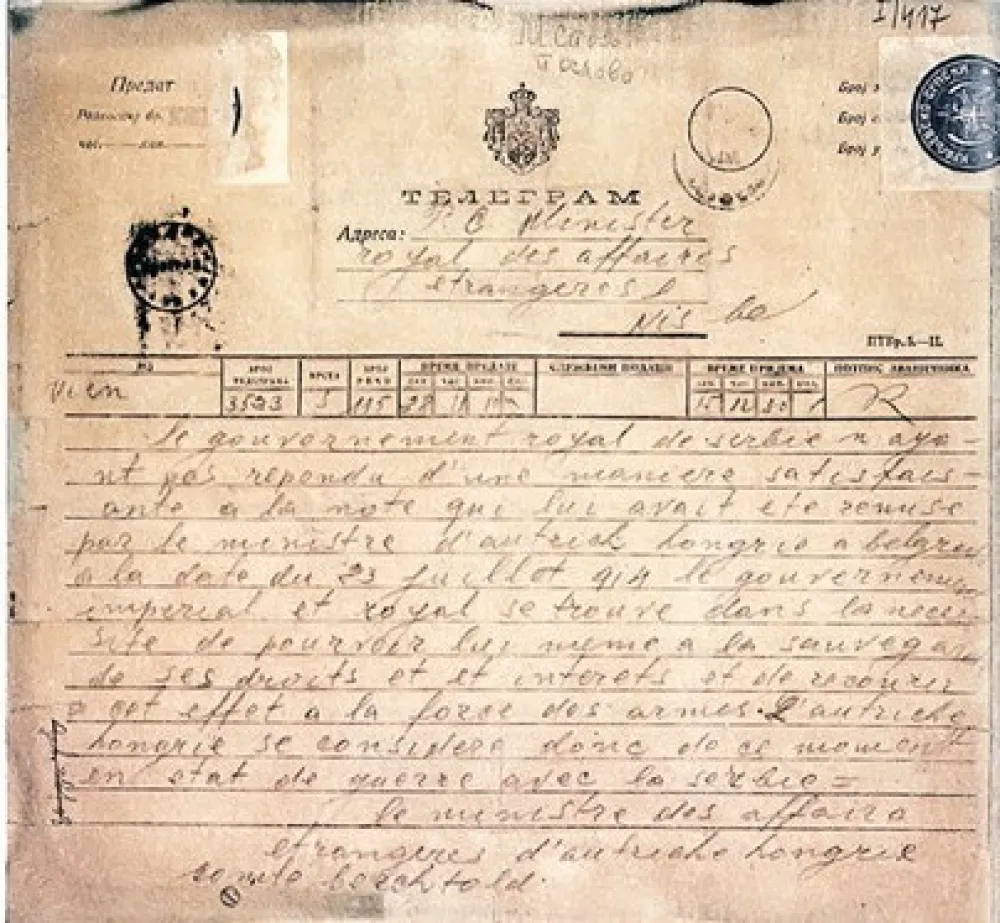 I/417
Предат
час.
Број
Број
Број у
ТЕЛЕГРАМ
Адреса: Minister
royal des affaires
etrangeres
Nis
ПТБр. 5.—II.
БРОЈ ТЕЛЕГРАМА ВРСТА БРОЈ РЕЧИ ВРЕМЕ ПРЕДАЈЕ СЛУЖБЕНИ ПОДАЦИ ВРЕМЕ ПРИЈЕМА ПОТПИС ЗВАНИЧНИКА
Vien 3523 115 28
le gouvornement royal de serbie n aya-
nt pas repondu d'une maniere satisfais-
ante a la note qui lui avait ete remise
par le ministre d'autrich hongrie a belgra
a la date du 23 juillot 914 le gouvernemen
imperial et royal se trouve dans la neces
site de pourvoir lui meme a la sauvegar
de ses droits et et interets et de recourir
a cet effet a la force des armes. L'autriche
hongrie se considere donc de ce moment
en etat de guerre avec la serbie =
le ministre des affaires
etrangeres d'autriche hongrie
comte berchtold.